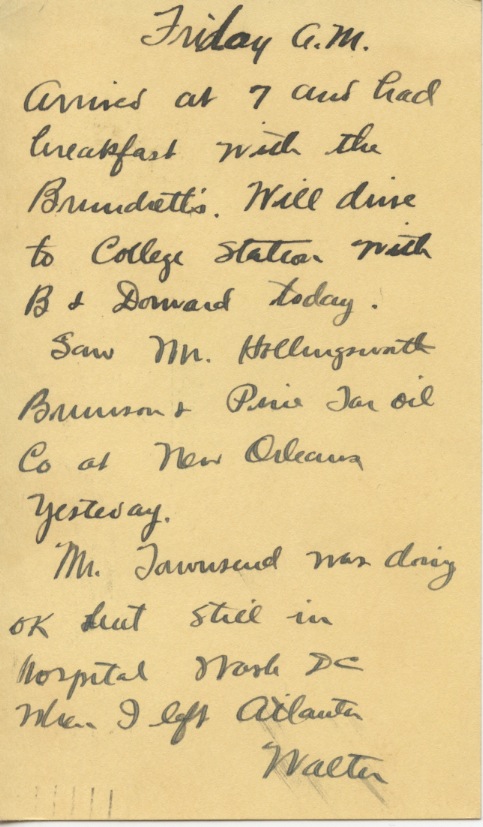 Friday A.M.
Arrived at 7 and had
breakfast with the
Brundrett's. Will drive
to College Station with
B & Dorward today.
Saw Mr. Hollingsworth
Brunson & Pine Tar oil
Co at New Orleans
Yesteday.
Mr. Townsend was doing
OK but still in
Hospital Wash DC
When I left Atlanta
Walter